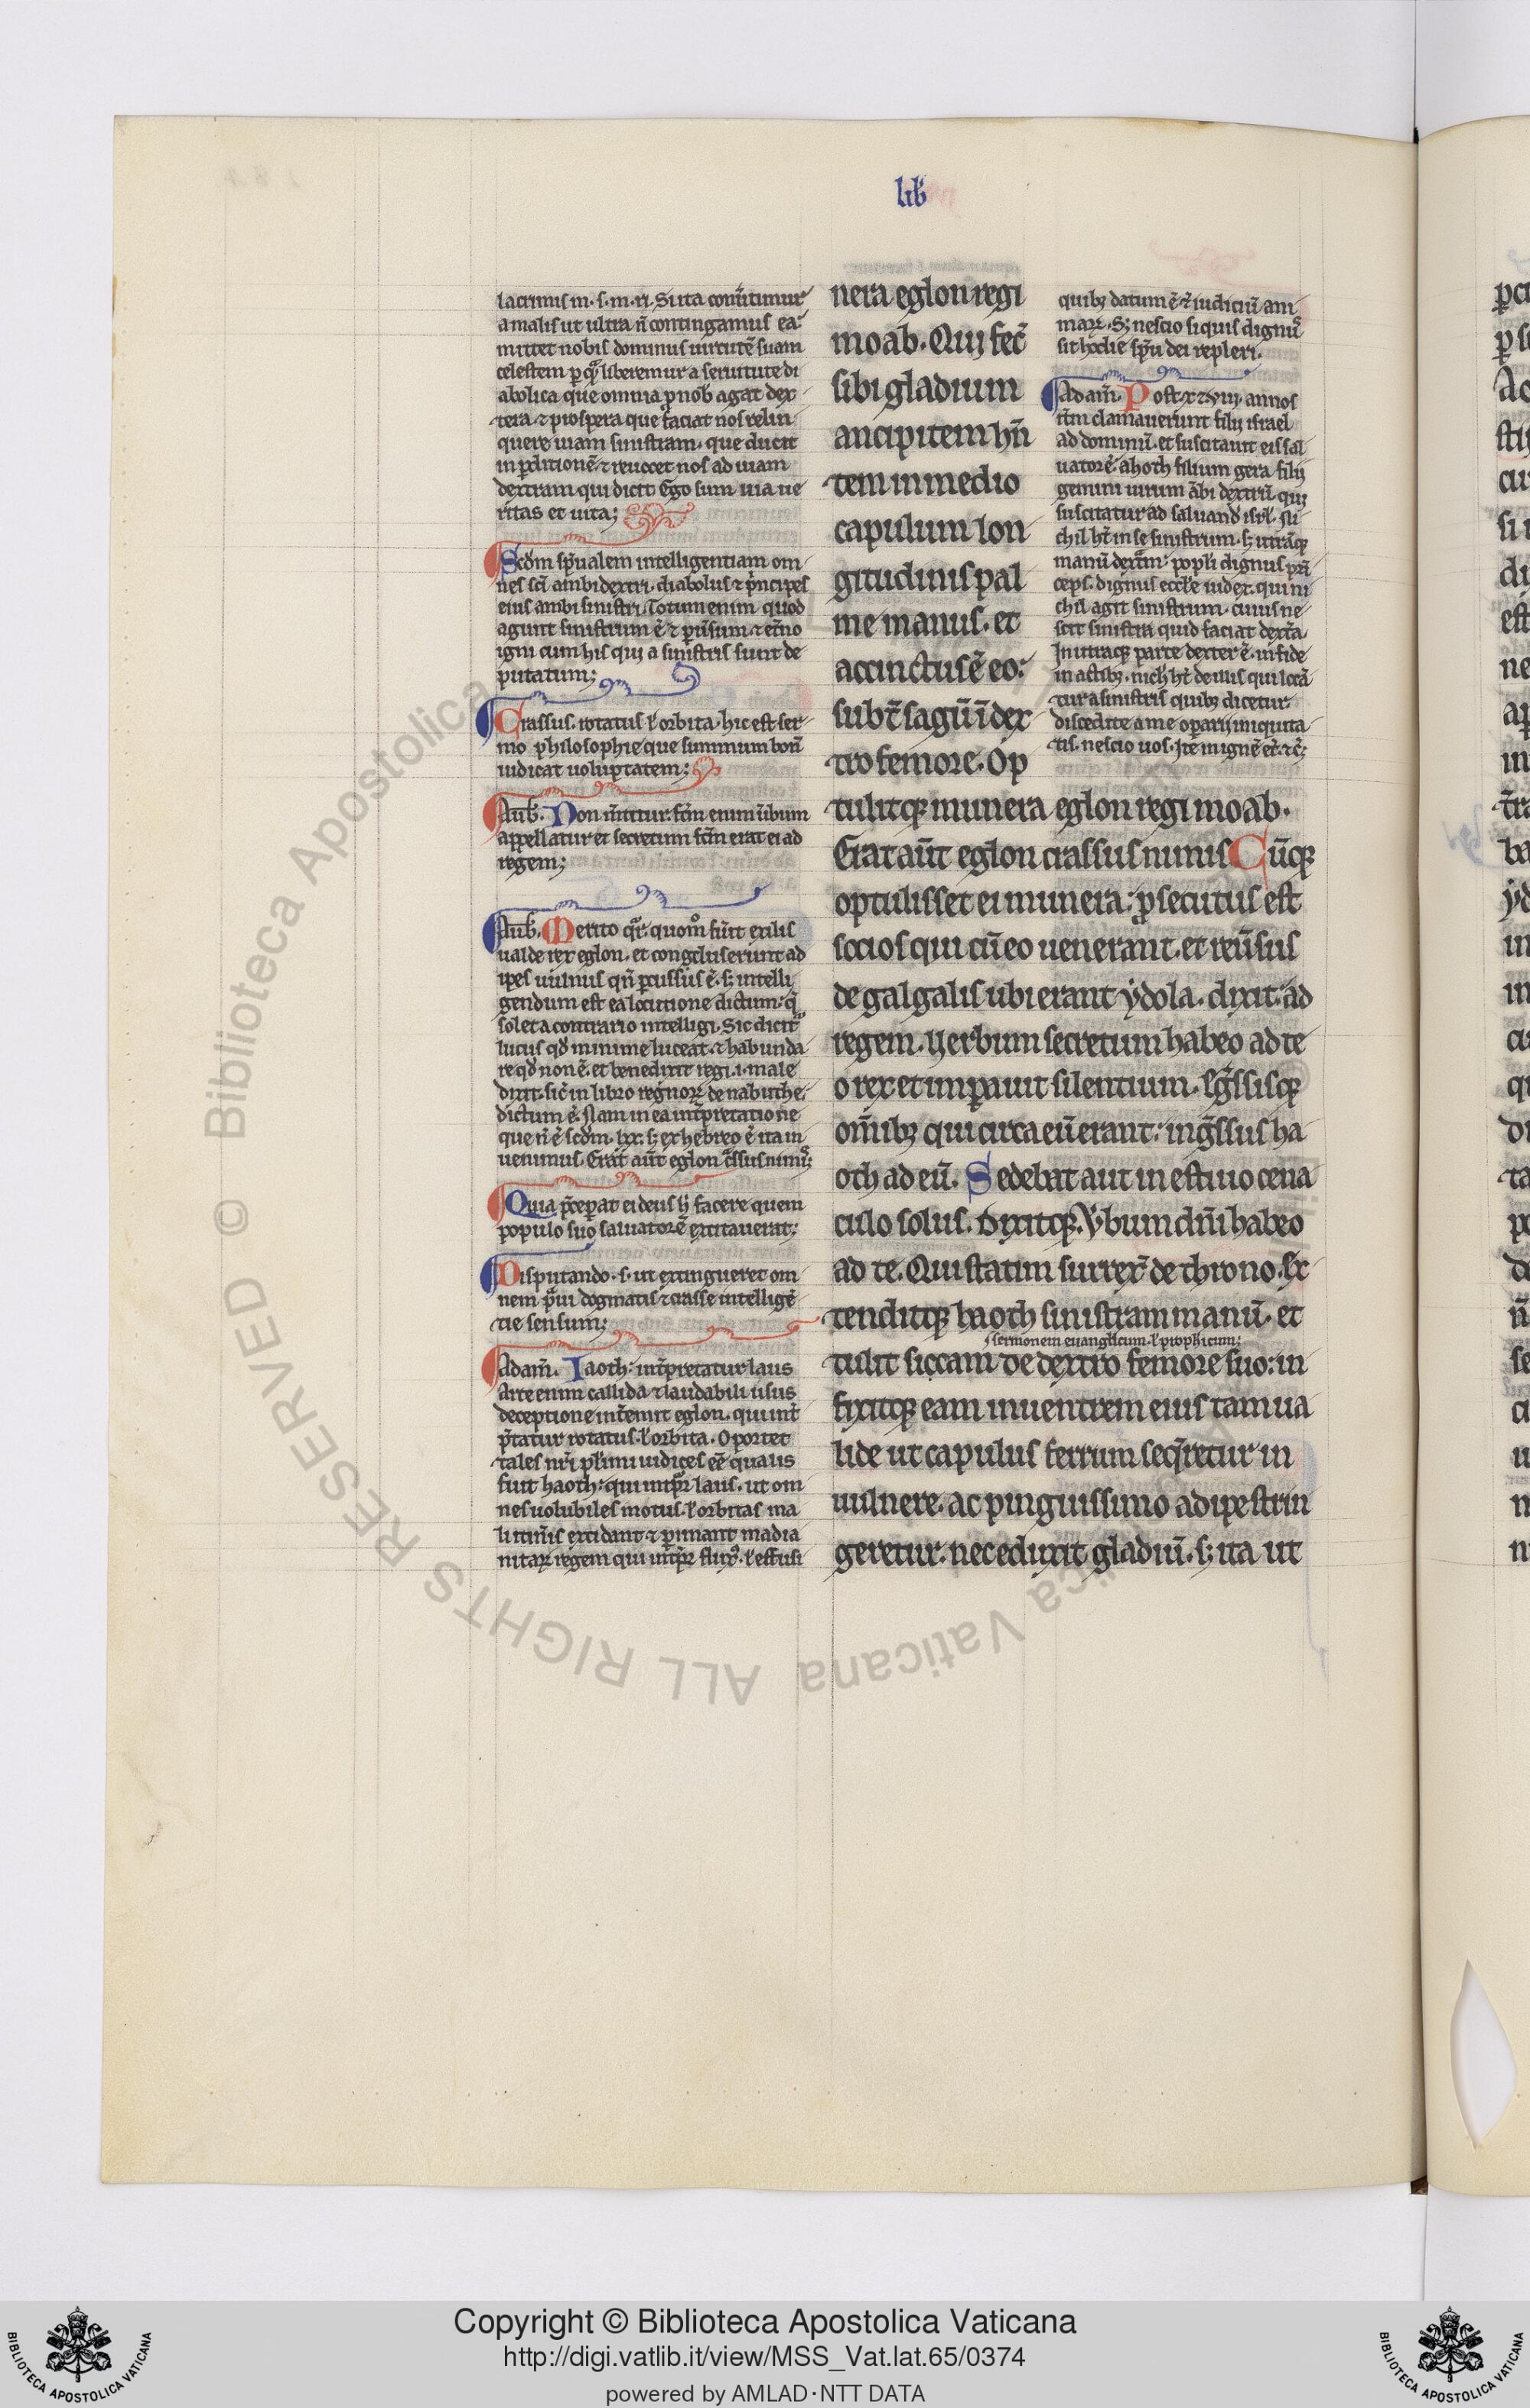 lib̃
lacrimis m. s. m. ri. Si ita conũtimur
a malis ut ultra ñ contingamus ea
mittet nobis dominus uirtutẽ suam
celestem ꝑ quã liberemur a seruitute di
abolica que omnia ꝓ nob̃ agat dex
tera ⁊ prospera que faciat nos relin
quere uiam sinistram. que ducit
in ꝑditionẽ ⁊ reuocet nos ad uiam
dextram qui dicit Ego sum uia ue
ritas et uita;
Scd̃m sp̃ualem intelligentiam om
nes sc̃i ambidextri. diabolus ⁊ pͥncipes
eius ambi sinistri. Totum enim quod
agunt sinistrum ẽ ⁊ ꝑũsum ⁊ et̃no
igni cum his qui a sinistris sunt de
putatum;
Crassus. rotatus ł orbita. hic est ser
mo philosophie que summum bonũ
iudicat uoluptatem;
Aub̃. Non ñtitur. fc̃m enim ũbum
appellatur et secretum fc̃m erat ei ad
regem;
Aub̃. Merito qͥr. quom̃o fũit exilis
ualde rex eglon. et concluserunt ad
ipes uulnus qñ ꝑcussus ẽ. sꝫ intelli
gendum est ea locutione dictum. q̃
solet a contrario intelligi. Sic dicitͬ
lucus qđ minime luceat. ⁊ habunda
re qđ non ẽ. et benedixit regi .i. male
dixit. sic̃ in libro regnoꝝ de nabuthe
dictum ẽ. Nam in ea int̃pretatione
que ñ ẽ scd̃m lxx. sꝫ ex hebreo ẽ ita in
uenimus. Erat aũt eglon cͣssus nimiͥ;
Quia p̃ceperat ei deus h̃ facere quem
populo suo saluatorẽ excitauerat;
Disputando .s. ut extingueret om
nem pͣui dogmatis ⁊ crasse intelligẽ
tie sensum;
Adam̃. Iaoth: int̃pretatur laus
Arte enim callida ⁊ laudabili usus
deceptione int̃emit eglon. qui int̃
p̃tatur rotatus. ł orbita. Oportet
tales nr̃i pľimi iudices eẽ qualis
fuit haoth: qui intp̃r laus. ut om
nes uolubiles motus. ł orbitas ma
li itin̾is excidant ⁊ ꝑimant madia
nitaꝝ regem qui intp̃r fluxꝰ. ł effusi
nera eglon regi
moab. Qui fec̃
sibi gladium
ancipitem hñ
tem in medio
capulum lon
gitudinis pal
me manus. et
accinctus ẽ eo:
subt̃ sagũ ĩ dex
tro femore. Op
tulitqꝫ munera eglon regi moab.
Erat aũt eglon crassus nimis Cũqꝫ
optulisset ei munera: ꝓsecutus est
socios qui cũ eo uenerant. et reũsus
de galgalis ubi erant ẏdola. dixit ad
regem. Uerbum secretum habeo ad te
o rex et imꝑauit silentium. Egͣssisqꝫ
om̃ibꝫ qui circa eũ erant: ingͣssus ha
oth ad eũ. Sedebat aut in estiuo cena
culo solus. Dixitqꝫ. Ṽbum dñi habeo
ad te. Qui statim surrex̃ de throno. Ex
tenditqꝫ haoth sinistram manũ. et
.s. sermonem euangľicum. ł prophicum:
tulit siccam de dextro femore suo: in
fixitqꝫ eam in uentrem eius tam ua
lide ut capulus ferrum seq̃retur in
uulnere. ac pinguissimo adipe strin
geretur. nec eduxit gladiũ. sꝫ ita ut
quibꝫ datum ẽ ⁊ iudiciũ ani
maꝝ. Sꝫ nescio si quis dignꝰ
sit hodie sp̃u dei repleri.
Adam̃. Post x ⁊ viij. annos
clamauerunt filij israel
ad dominũ. et suscitauit eis sal
uatorẽ. ahoth filium gera filij
gemini uirum ãbi dextrũ qui
suscitatur ad saluand̃ isrł. Ni
chil ht̃ in se sinistrum. sꝫ utrãqꝫ
manũ dextram: popľi dignus pͥn
ceps. dignus eccľe iudex. qui ni
chil agit sinistrum. cuius ne
scit sinistra quid faciat dext̃a
In utraqꝫ parte dexter ẽ. in fide
in actibꝫ. nich̃ ht̃ de illis qui locã
tur a sinistris quibꝫ dicetur
discedite a me operarij iniquita
tis. nescio uos. Ite in ignẽ et̃. ⁊c̃;
Copyright © Biblioteca Apostolica Vaticana
http://digi.vatlib.it/view/MSS_Vat.lat.65/0374
powered by AMLAD·NTT DATA
BIBLIOTECA APOSTOLICA VATICANA
BIBLIOTECA APOSTOLICA VATICANA
© Biblioteca Apostolica Vaticana ALL RIGHTS RESERVED